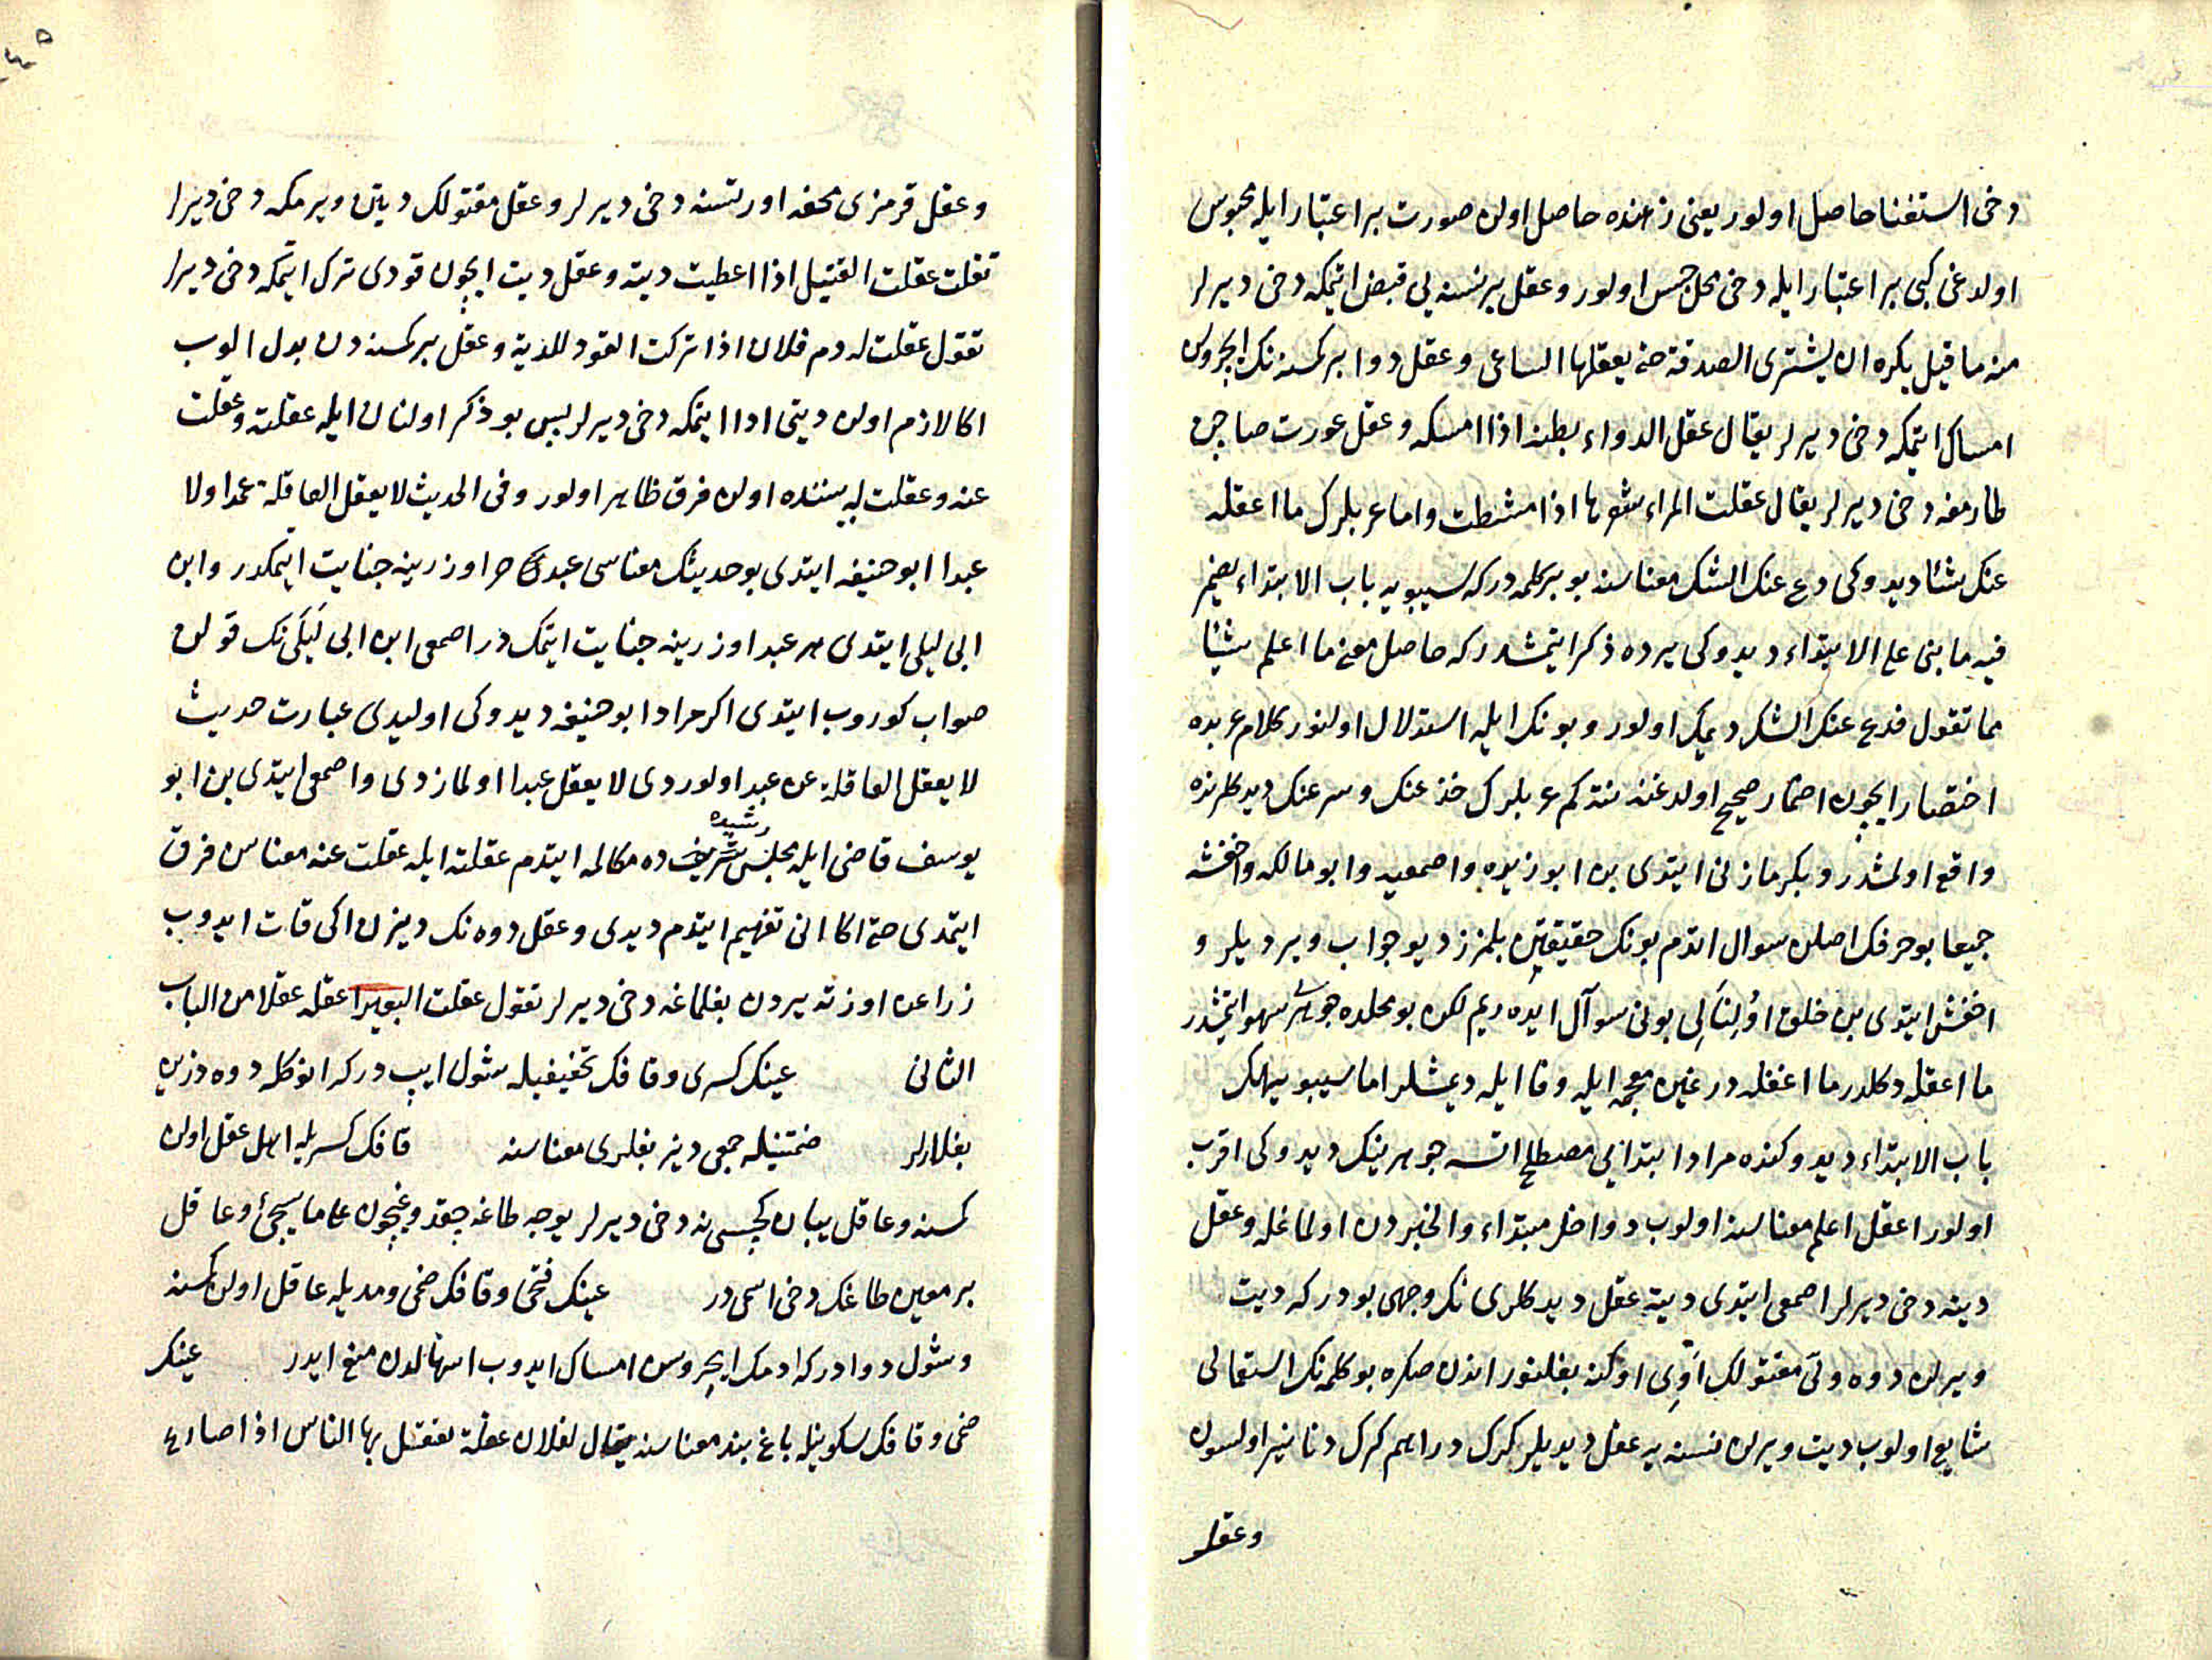 دخی استغنا حاصل اولور یعنی ذهنده حاصل اولان صورت بر اعتبار ایله محبوس
اولدغی کبی بر اعتبار ایله دخی محل حبس اولور وعقل بر نسنه یی قبض ایتمکه دخی دیرلر
منه ما قیل یکره ان یشتری الصدقة حتی یعقلها الساعی وعقل دوا بر کمسنه نک ایچروسن
امساک ایتمکه دخی دیرلر یقال عقل الدواء بطنه اذا امسکه وعقل عورت صاچن
طارمغه دخی دیرلر یقال عقلت المراء شعرها اذا مشطت واما عربلرک ما اعقله
عنک شئا دیدوکی دع عنک الشک معناسنه بو بر کلمه درکه سیبویه باب الابتداء یضمر
فیه ما بنی علی الابتداء دیدوکی یرده ذکر ایتمشدر که حاصل معنی ما اعلم شیئا
مما تقول فدع عنک الشک دیمک اولور وبونک ایله استدلال اولنور کلام عربده
اختصار ایچون اضمار صحیح اولدغنه نته کم عربلرک خذ عنک وسر عنک دیدکلرنده
واقع اولمشدر وبکر مازنی ایتدی بن ابو زیده واصمعیه وابو مالکه واخفشه
جمیعا بو حرفک اصلن سوال ایتدم بونک حقیقتین بلمزز دیو جواب ویردیلر و
اخفش ایتدی بن خلق اولنالی بونی سوآل ایده ریم لکن بو محلده جوهری سهو ایتمشدر
ما اعقله دکلدر ما اغفله در غین معجمه ایله وفا ایله دیمشلر اما سیبویهنک
باب الابتداء دیدوکنده مراد ابتدایی مصطلح ایسه جوهرینک دیدوکی اقرب
اولور اعقل اعلم معناسنه اولوب دواخل مبتداء والخبردن اولماغله وعقل
دیته دخی دیرلر اصمعی ایتدی دیته عقل دیدکلری نک وجهی بودر که دیت
ویرلن دوه ولی مقتولک اوی اوکنه بغلنور اندن صکره بو کلمه نک استعمالی
شایع اولوب دیت ویرلن نسنه یه عقل دیدیلر کرک دراهم کرک دنانیر اولسون
وعقل
وعقل قرمزی محفه اورتسنه دخی دیرلر وعقل مقتولک دیتن ویرمکه دخی دیرلر
تقلت عقلت القتیل اذا اعطیت دیته وعقل دیت ایچون قودی ترک ایتمکه دخی دیرلر
تقول عقلت له دم فلان اذا ترکت القود للدیة وعقل بر کمسنه دن بدل الوب
اکا لازم اولن دیتی ادا ایتمکه دخی دیرلر بس بو ذکر اولنان ایله عقلته وعقلت
عنه وعقلت له بیننده اولن فرق ظاهر اولور وفی الحدیث لا یعقل العاقلة عمدا ولا
عبدا ابو حنیفه ایتدی بو حدیثک معناسی عبدک حر اوزرینه جنایت ایتمکدر وابن
ابی لیلی ایتدی حر عبد اوزرینه جنایت ایتمک در اصمعی ابن ابی لیلی نک قولن
صواب کوروب ایتدی اکر مراد ابو حنیفه دیدوکی اولیدی عبارت حدیث
لا یعقل العاقلة عن عبد اولوردی لا یعقل عبدا اولمازدی واصمعی ایتدی بن ابو
یوسف قاضی ایله مجلس شریف ده مکالمه ایتدم عقلته ایله عقلت عنه معناسن فرق
رشیده
ایتمدی حتی اکا انی تفهیم ایتدم دیدی وعقل دوه نک دیزن اکی قات ایدوب
زراعن اوزته یردن بغلماغه دخی دیرلر تقول عقلت البعیر اعقله عقلا من الباب
الثانی عینک کسری وقافک تخفیفیله شول ایپ درکه انوکله دوه دزین
بغلارلر ضمتنیله جمعی دیز بغلری معناسنه قافک کسریله اهل عقل اولن
کمسنه وعاقل یبان کچیسی نه دخی دیرلر یوجه طاغه چقدوغیچون علی ما یجئ وعاقل
بر معین طاغک دخی اسمی در عینک فتحی وقافک ضمی ومدیله عاقل اولن کمسنه
وشول دوادر که ادمک ایچروسن امساک ایدوب اسهالدن منع ایدر عینک
ضمی وقافک سکونیله باغ بند معناسنه یقال لفلان عقلة یعتقل بها الناس اذا صارع